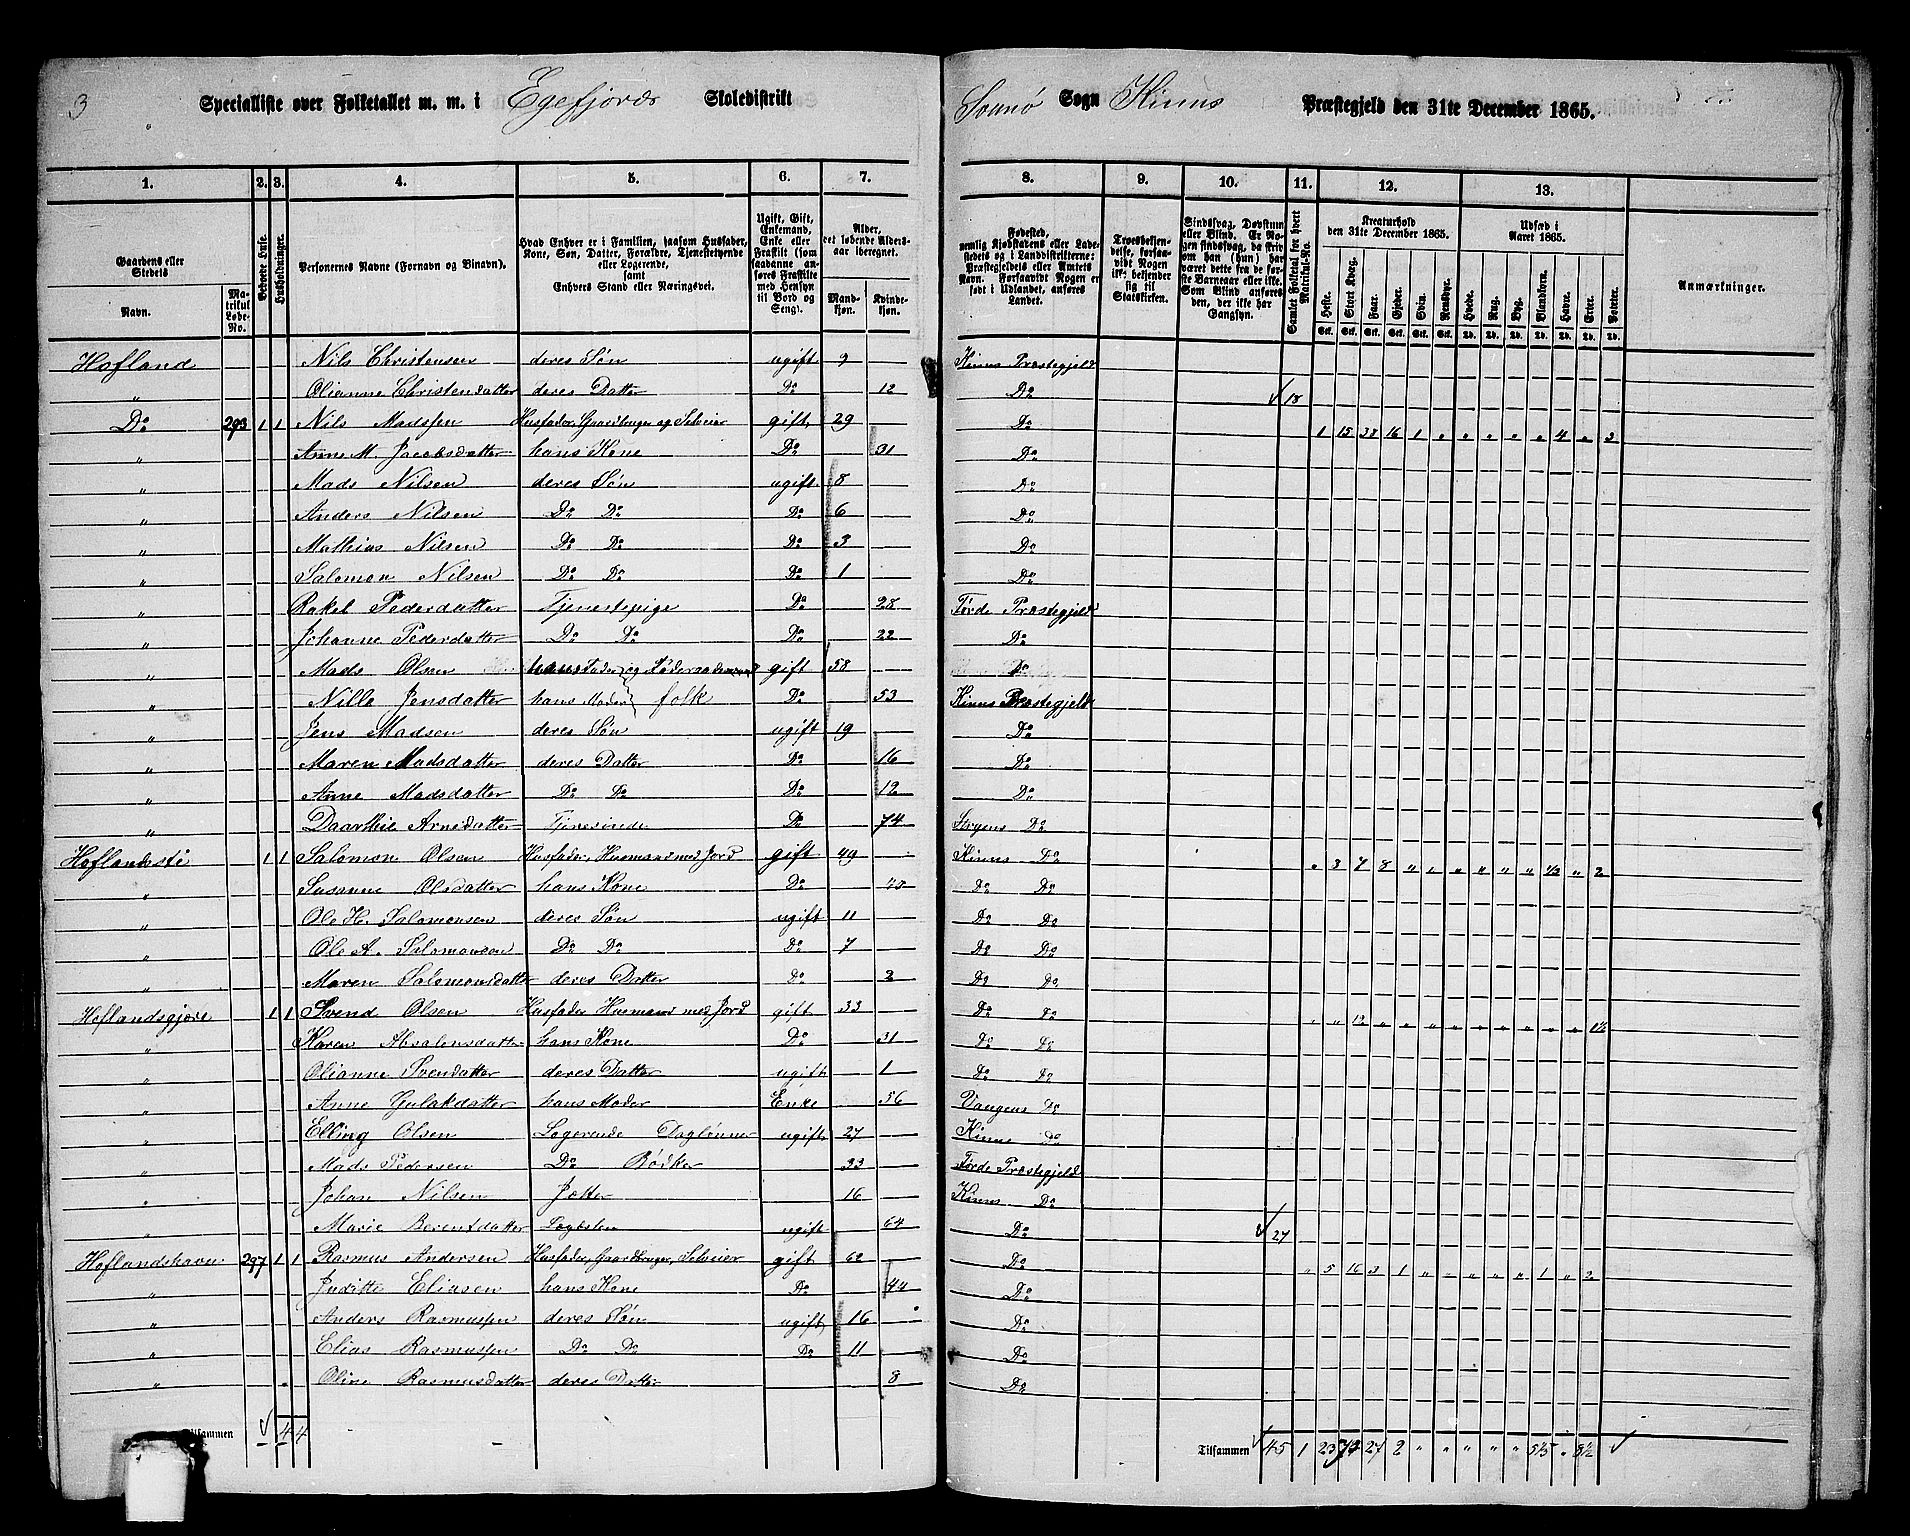 3 Specialliste over Folketallet m. m. i Egefjords Skoledistrikt Sognø Sogn Kinns Præstegjeld den 31te December 1865.
1. 2. 3. 4. 5. 6. 7. 8. 9. 10. 11. 12. 13.
Gaardens eller Stedets Navn. Matrikul Løbe-No. Beboede Huse. Husholdninger. Personernes Navne (Fornavn og Tilnavn). Hvad Enhver er i Familien, saasom Husfader, Kone, Søn, Datter, Forældre, Tjenestetyende eller Logerende, samt Enhvers Stand eller Næringsvei. Ugift, Gift, Enkemand, Enke eller Fraskilt (som saadanne anføres Fraskilte med Hensyn til Bord og Seng). Alder, det løbende Aldersaar iberegnet. Mandkjøn. Kvindekjøn. Fødested, nemlig Kjøbstadens eller Ladestedets og i Landdistrikterne: Præstegjeldets eller Amtets Navn. Forsaavidt Nogen er født i Udlandet, anføres Landet. Troesbekjendelse, forsaavidt Nogen ikke bekjender sig til Statskirken. Sindssvag, Døvstum eller Blind. Er Nogen sindssvag, da skrives om han (hun) har været dette fra de første Barneaar eller ikke. Som Blind anføres den, der ikke har Gangsyn. Samlet Folketal for hvert Matrikul-No. Kreaturhold den 31te December 1865. Udsæd i Aaret 1865. Anmærkninger.
Heste. Stort Kvæg. Faar. Gjeder. Svin. Rensdyr. Hvede. Rug. Byg. Blandkorn. Havre. Erter. Poteter.
Hofland Nils Christensen deres Søn ugift 9 Kinns Præstegjeld
" Olianne Christensdatter deres Datter Do 12 Do 18
Do 293 1 1 Nils Madsen Husfader, Gaardbruger og Selveier gift 29 Do 1 15 38 16 1 " " " " " 4 " 3
" Anne M. Jacobsdatter hans Kone Do 31 Do
" Mads Nilsen deres Søn ugift 8 Do
" Anders Nilsen Do Do Do 6 Do
" Mathias Nilsen Do Do Do 3 Do
" Salomon Nilsen Do Do Do 1 Do
" Rakel Pedersdatter Tjenestepige Do 28 Førde Præstegjeld
" Johanne Pedersdatter Do Do Do 22 Do
" Mads Olsen hans Fader og Føderaads gift 58 Do
" Nille Jensdatter hans Moder folk Do 53 Kinns Præstegjeld
" Jens Madsen deres Søn ugift 19 Do
" Maren Madsdatter deres Datter Do 16 Do
" Anne Madsdatter Do Do Do 12 Do
" Arnesdatter Do 74 Do
Salomon Olsen Husfader, Husmand med Jord gift 49 Kinns Do " 3 7 8 " " " " " " 1/2 " 2
1 1
" Susanne Olsdatter hans Kone Do Do Do
" Ole H. Salomonsen deres Søn ugift 11 Do Do
" Ole A. Salomonsen Do Do Do 7 Do Do
" Maren Salomonsdatter deres Datter Do 2 Do Do
Hoflandsgjøre 1 1 Svend Olsen Husfader Husmand med Jord gift 33 Do Do " " 12 " " " " " " " " " 1½
" Karen Absalonsdatter hans Kone Do 31 Do Do
" Olianne Svendatter deres Datter ugift 1 Do Do
" Anne Gulakdatter hans Moder Enke 56 Do
" Elling Olsen Logerende Daglønner ugift 27 Kinns Do
" Mads Pedersen Do Bødker 33 Førde Præstegjeld
" Johan Nilsen 16 Kinns Do
" Marie Berentdatter ugift 64 Do 27
Hoflandshavn 297 1 1 Rasmus Andersen Husfader, Gaardbruger, Selveier gift 62 Do " 5 16 3 1 " " " " " 1 " 2
" Juditte Eliasen hans Kone Do 44 Do
" Anders Rasmussen deres Søn ugift 16 Do
" Elias Rasmussen Do Do Do 11 Do
" Oline Rasmusdatter deres Datter 8 Do
Tilsammen 4 4 Tilsammen 45 1 23 73 27 2 " " " " " 5½ " 8½